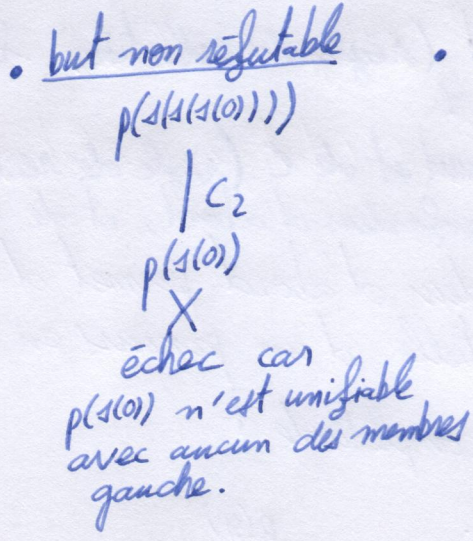 • but non réfutable •
p(s(s(s(0))))
C2
p(s(0))
X
échec car
p(s(0)) n'est unifiable
avec aucun des membres
gauche.